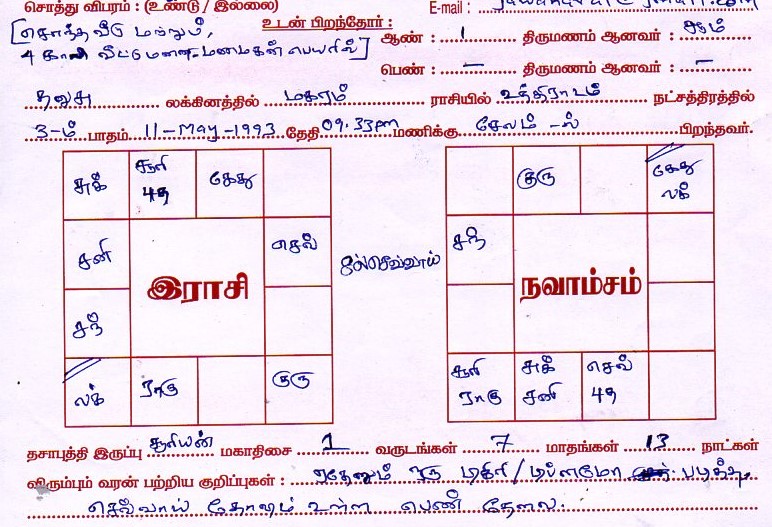 சொத்து விபரம் : (உண்டு / இல்லை) E-mail :
[சொந்த வீடு மற்றும், உடன் பிறந்தோர் : ஆண் : 1 திருமணம் ஆனவர் : ஆம்
4 காலி வீட்டு மனை - மணமகன் பெயரில்] பெண் : — திருமணம் ஆனவர் : —
தனுசு லக்கினத்தில் மகரம் ராசியில் உத்திராடம் நட்சத்திரத்தில்
3-ம் பாதம் 11-May-1993 தேதி 09.33pm மணிக்கு சேலம் -ல் பிறந்தவர்.
சுக் சூரி கேது குரு கேது
புத லக்
சனி செவ் 8ல்செவ்வாய் சந்
இராசி நவாம்சம்
சந்
லக் ராகு குரு சூரி சுக் செவ்
ராகு சனி புத
தசாபுத்தி இருப்பு சூரியன் மகாதிசை 1 வருடங்கள் 7 மாதங்கள் 13 நாட்கள்
விரும்பும் வரன் பற்றிய குறிப்புகள் : ஏதேனும் ஒரு டிகிரி / டிப்ளமோ படித்த,
செவ்வாய் தோஷம் உள்ள பெண் தேவை.